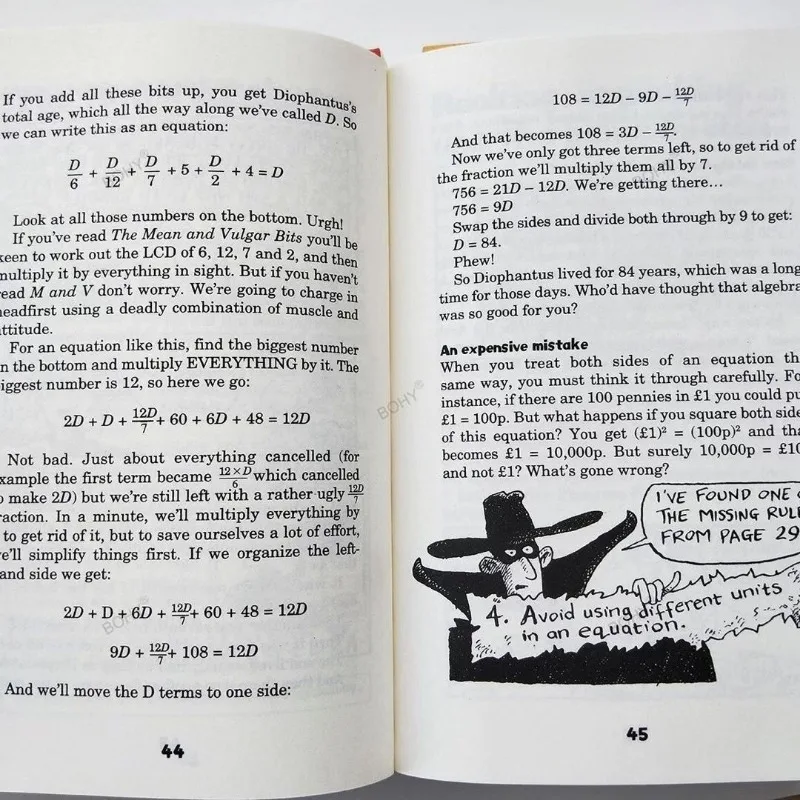 If you add all these bits up, you get Diophantus's
total age, which all the way along we've called D. So
we can write this as an equation:
D/6 + D/12 + D/7 + 5 + D/2 + 4 = D
Look at all those numbers on the bottom. Urgh!
If you've read The Mean and Vulgar Bits you'll be
keen to work out the LCD of 6, 12, 7 and 2, and then
multiply it by everything in sight. But if you haven't
read M and V don't worry. We're going to charge in
headfirst using a deadly combination of muscle and
attitude.
For an equation like this, find the biggest number
on the bottom and multiply EVERYTHING by it. The
biggest number is 12, so here we go:
2D + D + 12D/7 + 60 + 6D + 48 = 12D
Not bad. Just about everything cancelled (for
example the first term became 12×D/6 which cancelled
to make 2D) but we're still left with a rather ugly 12D/7
fraction. In a minute, we'll multiply everything by
to get rid of it, but to save ourselves a lot of effort,
we'll simplify things first. If we organize the left-
hand side we get:
2D + D + 6D + 12D/7 + 60 + 48 = 12D
9D + 12D/7 + 108 = 12D
And we'll move the D terms to one side:
44
108 = 12D − 9D − 12D/7
And that becomes 108 = 3D − 12D/7.
Now we've only got three terms left, so to get rid of
the fraction we'll multiply them all by 7.
756 = 21D − 12D. We're getting there...
756 = 9D
Swap the sides and divide both through by 9 to get:
D = 84.
Phew!
So Diophantus lived for 84 years, which was a long
time for those days. Who'd have thought that algebra
was so good for you?
An expensive mistake
When you treat both sides of an equation the
same way, you must think it through carefully. For
instance, if there are 100 pennies in £1 you could put
£1 = 100p. But what happens if you square both sides
of this equation? You get (£1)² = (100p)² and that
becomes £1 = 10,000p. But surely 10,000p = £100
and not £1? What's gone wrong?
I'VE FOUND ONE OF
THE MISSING RULES
FROM PAGE 29
4. Avoid using different units
in an equation.
45
BOHY®